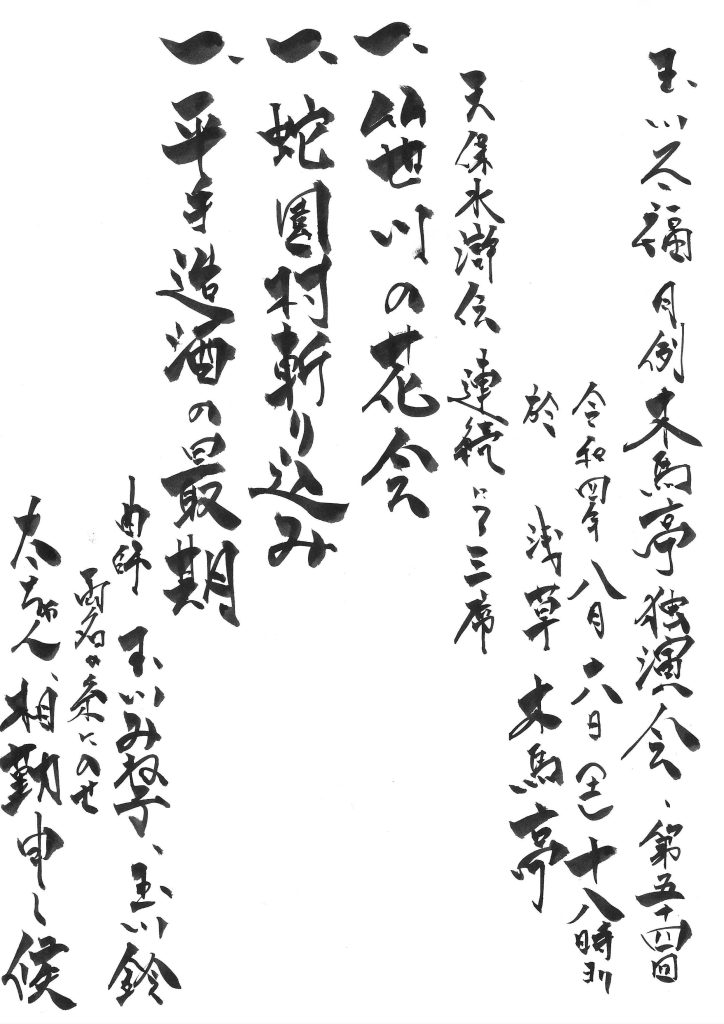 玉川太福 月例木馬亭独演会、第五十四回
令和四年 八月六日(土)十八時ヨリ
於 浅草木馬亭
天保水滸伝 連続にて三席
一、笹川の花会
一、蛇園村斬り込み
一、平手造酒の最期
曲師 玉川みね子、玉川鈴
両名の糸にのせ
太ちゃん、相勤申し候